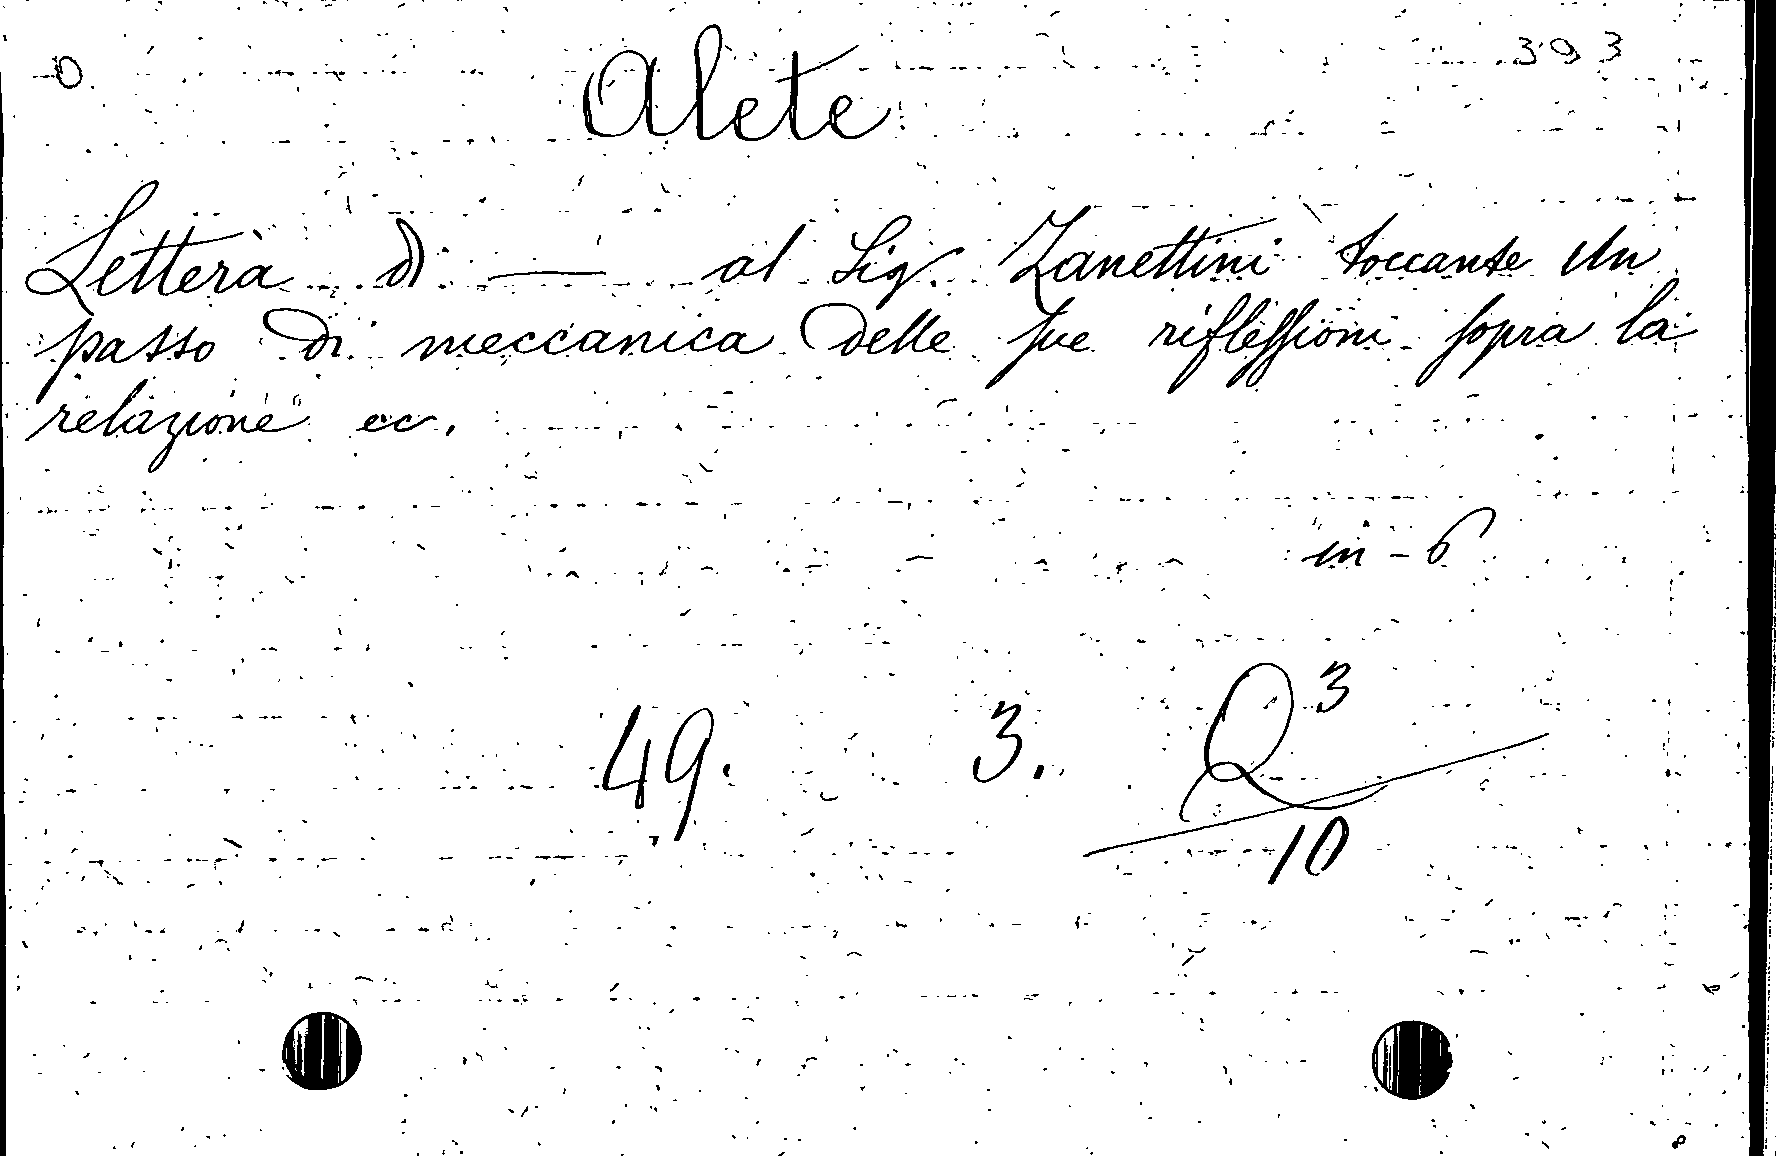 O.
393
Alete
Lettera di —— al Sig. Zanettini toccante un
passo di meccanica delle sue riflessioni sopra la
relazione ec.
in-8
49. 3. Q 3
10